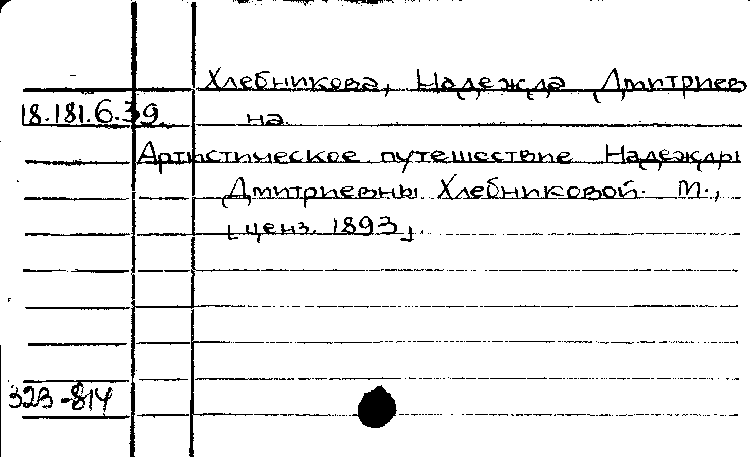 Хлебникова, Надежда Дмитриев
18.181.6.39 на
Артистическое путешествие Надежды
Дмитриевны Хлебниковой. М.,
[ценз. 1893].
323-814